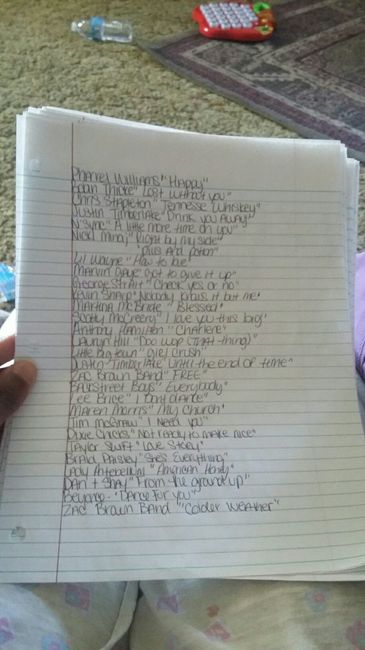 Pharrel Williams "Happy"
Robin Thicke "Lost without you"
Chris Stapleton "Tennesse Whiskey"
Justin Timberlake "Drink you Away"
N'Sync "A little more time on you"
Nicki Minaj "Right by my side"
"plus
Lil Wayne "How to love"
Marvin Gaye "got to give it up"
George Strait "Check yes or no"
Kevin Sharp "Nobody knows it but me"
Martina McBride "Blessed"
Scotty McCreery "I love you this big"
Anthony Hamilton "Charlene"
Lauryn Hill "Doo wop (That thing)
Little big town "girl crush"
Justin Timberlake "Until the end of time"
Zac Brown Band "FREE"
Backstreet Boys "Everybody"
Lee Brice "I Don't dance"
Maren Morris "My Church"
Tim McGraw "I Need you"
Dixie Chicks "Not ready to make nice"
Taylor Swift "Love Story"
Brad Paisley "She's Everything"
Lady Antebellum "American Honey"
Dan + Shay "From the ground up"
Beyonce - "Dance for you"
Zac Brown Band "Colder Weather"